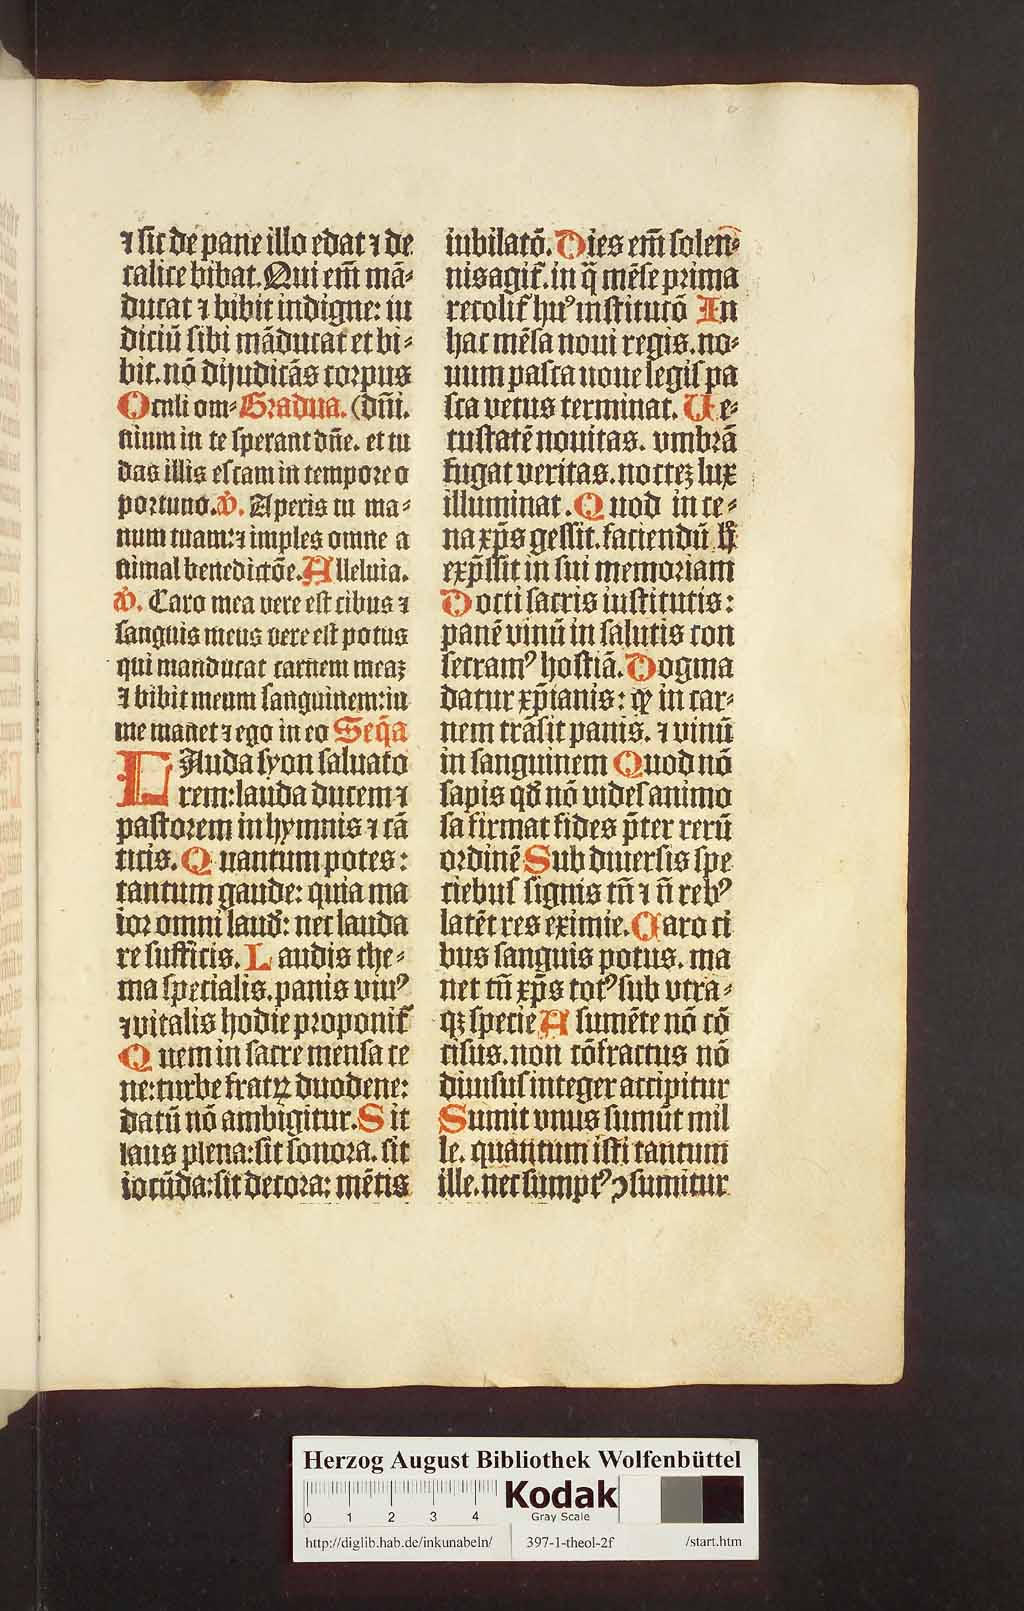 ⁊ sic de pane illo edat ⁊ de
calice bibat. Qui em̄ mā⸗
ducat ⁊ bibit indigne: iu
diciū sibi māducat et bi⸗
bit. nō dijudicās corpus
Oculi om⸗ Gradua. (dn̄i.
nium in te sperant dn̄e. et tu
das illis escam in tempore o
portuno. ℣. Aperis tu ma⸗
num tuam: ⁊ imples omne a
nimal benedictōe. Alleluia.
℣. Caro mea vere est cibus ⁊
sanguis meus vere est potus
qui manducat carnem meaꝫ
⁊ bibit meum sanguinem: in
me manet ⁊ ego in eo Seq̄a
LAuda syon saluato
rem: lauda ducem ⁊
pastorem in hymnis ⁊ cā
ticis. Quantum potes:
tantum gaude: quia ma
ior omni laud̛: nec lauda
re sufficis. Laudis the⸗
ma specialis. panis viuꝰ
⁊ vitalis hodie proponit᷑
Quem in sacre mensa ce
ne: turbe fratꝝ duodene:
datū nō ambigitur. Sit
laus plena: sit sonora. sit
iocūda: sit decora: mētis
iubilatō. Dies em̄ solen̄⸗
nis agit᷑. in q̄ mēse prima
recolit᷑ huꝰ institucō In
hac mēsa noui regis. no⸗
uum pasca noue legis pa
sca vetus terminat. Ve⸗
tustatē nouitas. vmbrā
fugat veritas. nocteꝫ lux
illuminat. Quod in ce⸗
na xp̄s gessit. faciendū h̛
exp̄ssit in sui memoriam
Docti sacris institutis:
panē vinū in salutis con
secramꝰ hostiā. Dogma
datur xp̄ianis: ꝙ in car⸗
nem trāsit panis. ⁊ vinū
in sanguinem Quod nō
capis qd̛ nō vides animo
sa firmat fides p̄ter rerū
ordinē Sub diuersis spe
ciebus signis tm̄ ⁊ n̄ rebꝰ
latēt res eximie. Caro ci
bus sanguis potus. ma
net tn̄ xp̄s totꝰ sub vtra⸗
qꝫ specie A sumēte nō cō
cisus. non cōfractus nō
diuisus integer accipitur
Sumit vnus sumūt mil
le. quantum isti tantum
ille. nec sumptꝰ ꝯsumitur
Herzog August Bibliothek Wolfenbüttel
0 1 2 3 4 Kodak
Gray Scale
http://diglib.hab.de/inkunabeln/ 397-1-theol-2f /start.htm